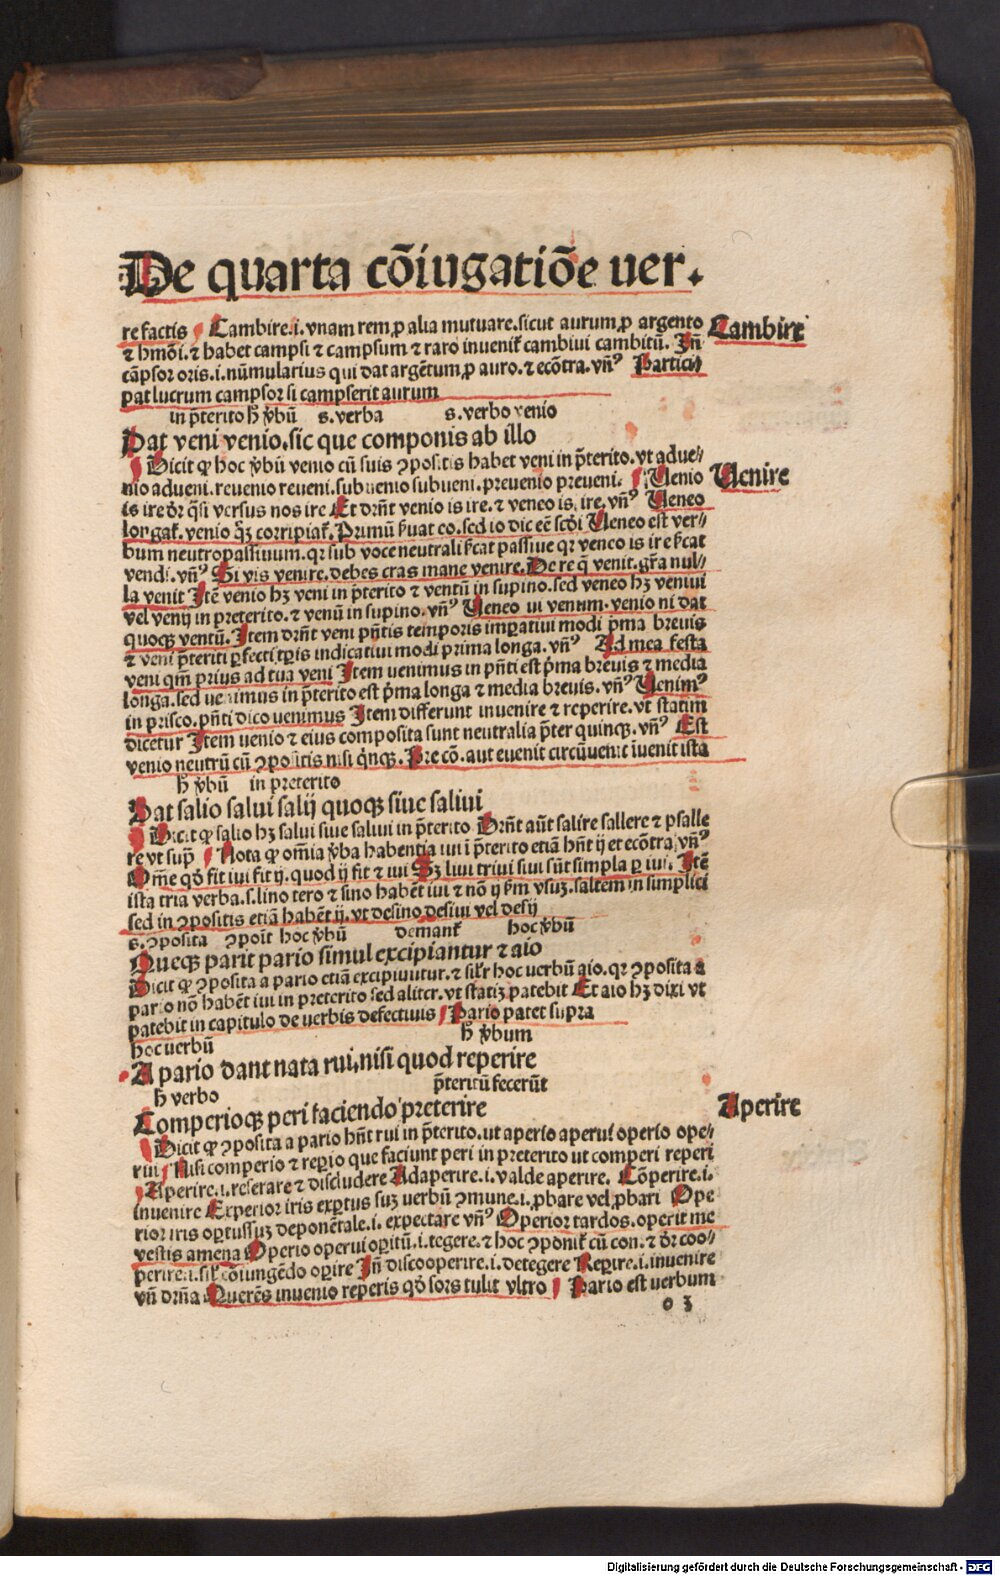 De quarta cõiugatiõe uer.
re factis Cambire.i. vnam rem ꝓ alia mutuare.sicut aurum ꝓ argento
Cambire
⁊ hmõi.⁊ habet campsi ⁊ campsum ⁊ raro inuenit᷑ cambiui cambitũ. Iñ
cãpsor oris.i. nũmularius qui dat argẽtum ꝓ auro.⁊ ecõtra.vñ⁹ Partici⸗
pat lucrum campsor si campserit aurum
in p̃terito h̃ v̾bũ s.verba s.verbo venio
Dat veni venio.sic que componis ab illo
Dicit ꝙ hoc v̾bũ venio cũ suis ꝯpositis habet veni in p̃terito.vt adue⸗
nio adueni.reuenio reueni.subuenio subueni.preuenio preueni. Uenio
Uenire
is ire dr̃ q̃si versus nos ire Et drñt venio is ire.⁊ veneo is, ire. vñ⁹ Ueneo
longat᷑. venio qꝫ corripiat᷑. Primũ ẜuat eo. sed io dic eẽ scd̾i Ueneo est ver⸗
bum neutropassiuum.qꝛ sub voce neutrali ẜcat passiue qꝛ veneo is ire ẜcat
vendi.vñ⁹ Si vis venire.debes cras mane venire.De re q̃ venit.gr̃a nul⸗
la venit Itẽ venio hꝫ veni in p̃terito ⁊ ventũ in supino.sed veneo hꝫ veniui
vel venij in preterito.⁊ venũ in supino.vñ⁹ Ueneo ui venum. venio ni dat
quoqꝫ ventũ. Item drñt veni p̃ntis temporis imꝑatiui modi p̾ma breuis
⁊ veni p̃teriti ꝑfecti tꝑis indicatiui modi prima longa. vñ⁹ Ad mea festa
veni qm̃ prius ad tua veni Item uenimus in p̃nti est p̾ma breuis ⁊ media
longa.sed uenimus in p̃terito est p̾ma longa ⁊ media breuis. vñ⁹ Uenim⁹
in prisco. p̃nti dico uenimus Item differunt inuenire ⁊ reperire.vt statim
dicetur Item uenio ⁊ eius composita sunt neutralia p̃ter quinqꝫ. vñ⁹ Est
venio neutrũ cũ ꝯpositis nisi q̾nqꝫ. Pre cõ. aut euenit circũuenit ĩuenit ista
h̃ v̾bũ in preterito
Dat salio salui salij quoqꝫ siue saliui
Dicit ꝙ salio hꝫ salui siue saliui in p̃terito Drñt aũt salire sallere ⁊ psalle
re vt supᷓ Nota ꝙ om̃ia v̾ba habentia iui ĩ p̃terito etiã hñt ij et ecõtra. vñ⁹
Om̃e qd̾ fit iui fit ij. quod ij fit ⁊ iui Sꝫ liui triui siui sũt simpla ꝑ iui. Itẽ
ista tria verba.s.lino tero ⁊ sino habẽt iui ⁊ nõ ij ẜm vsuꝫ.saltem in simplici
sed in ꝯpositis etiã habẽt ij. vt desino desiui vel desij
s.ꝯposita ꝯpoit hoc v̾bũ demant᷑ hoc v̾bũ
Queqꝫ parit pario simul excipiantur ⁊ aio
Dicit ꝙ ꝯposita a pario etiã excipiuutur.⁊ sil̾r hoc uerbũ aio. qꝛ ꝯposita a
pario nõ habẽt iui in preterito sed aliter. vt statiꝫ patebit Et aio hꝫ dixi vt
patebit in capitulo de uerbis defectiuis Pario patet supra
hoc uerbũ h̃ v̾bum
A pario dant nata rui.nisi quod reperire
h̃ verbo p̃teritũ fecerũt
Comperioqꝫ peri faciendo preterire
Dicit ꝙ ꝯposita a pario hñt rui in p̃terito.ut aperio aperui operio ope⸗
Aperire
rui Nisi comperio ⁊ reꝑio que faciunt peri in preterito ut comperi reperi
Aperire.i. reserare ⁊ discludere Adaperire.i. valde aperire. Cõperire.i.
inuenire Experior iris exꝑtus suꝫ uerbũ ꝯmune.i. ꝓbare vel ꝓbari Ope
rior iris oꝑtussuꝫ deponẽtale.i. expectare vñ⁹ Operior tardos. operit me
vestis amena Operio operui oꝑitũ.i.tegere.⁊ hoc ꝯponit᷑ cũ con.⁊ dr̃ coo⸗
perire.i.sil̾ cõiungẽdo oꝑire Iñ discooperire.i.detegere Reꝑire.i.inuenire
vñ drñia Querẽs inuenio reperis qd̾ sors tulit vltro Pario est uerbum
o 3
Digitalisierung gefördert durch die Deutsche Forschungsgemeinschaft - DFG